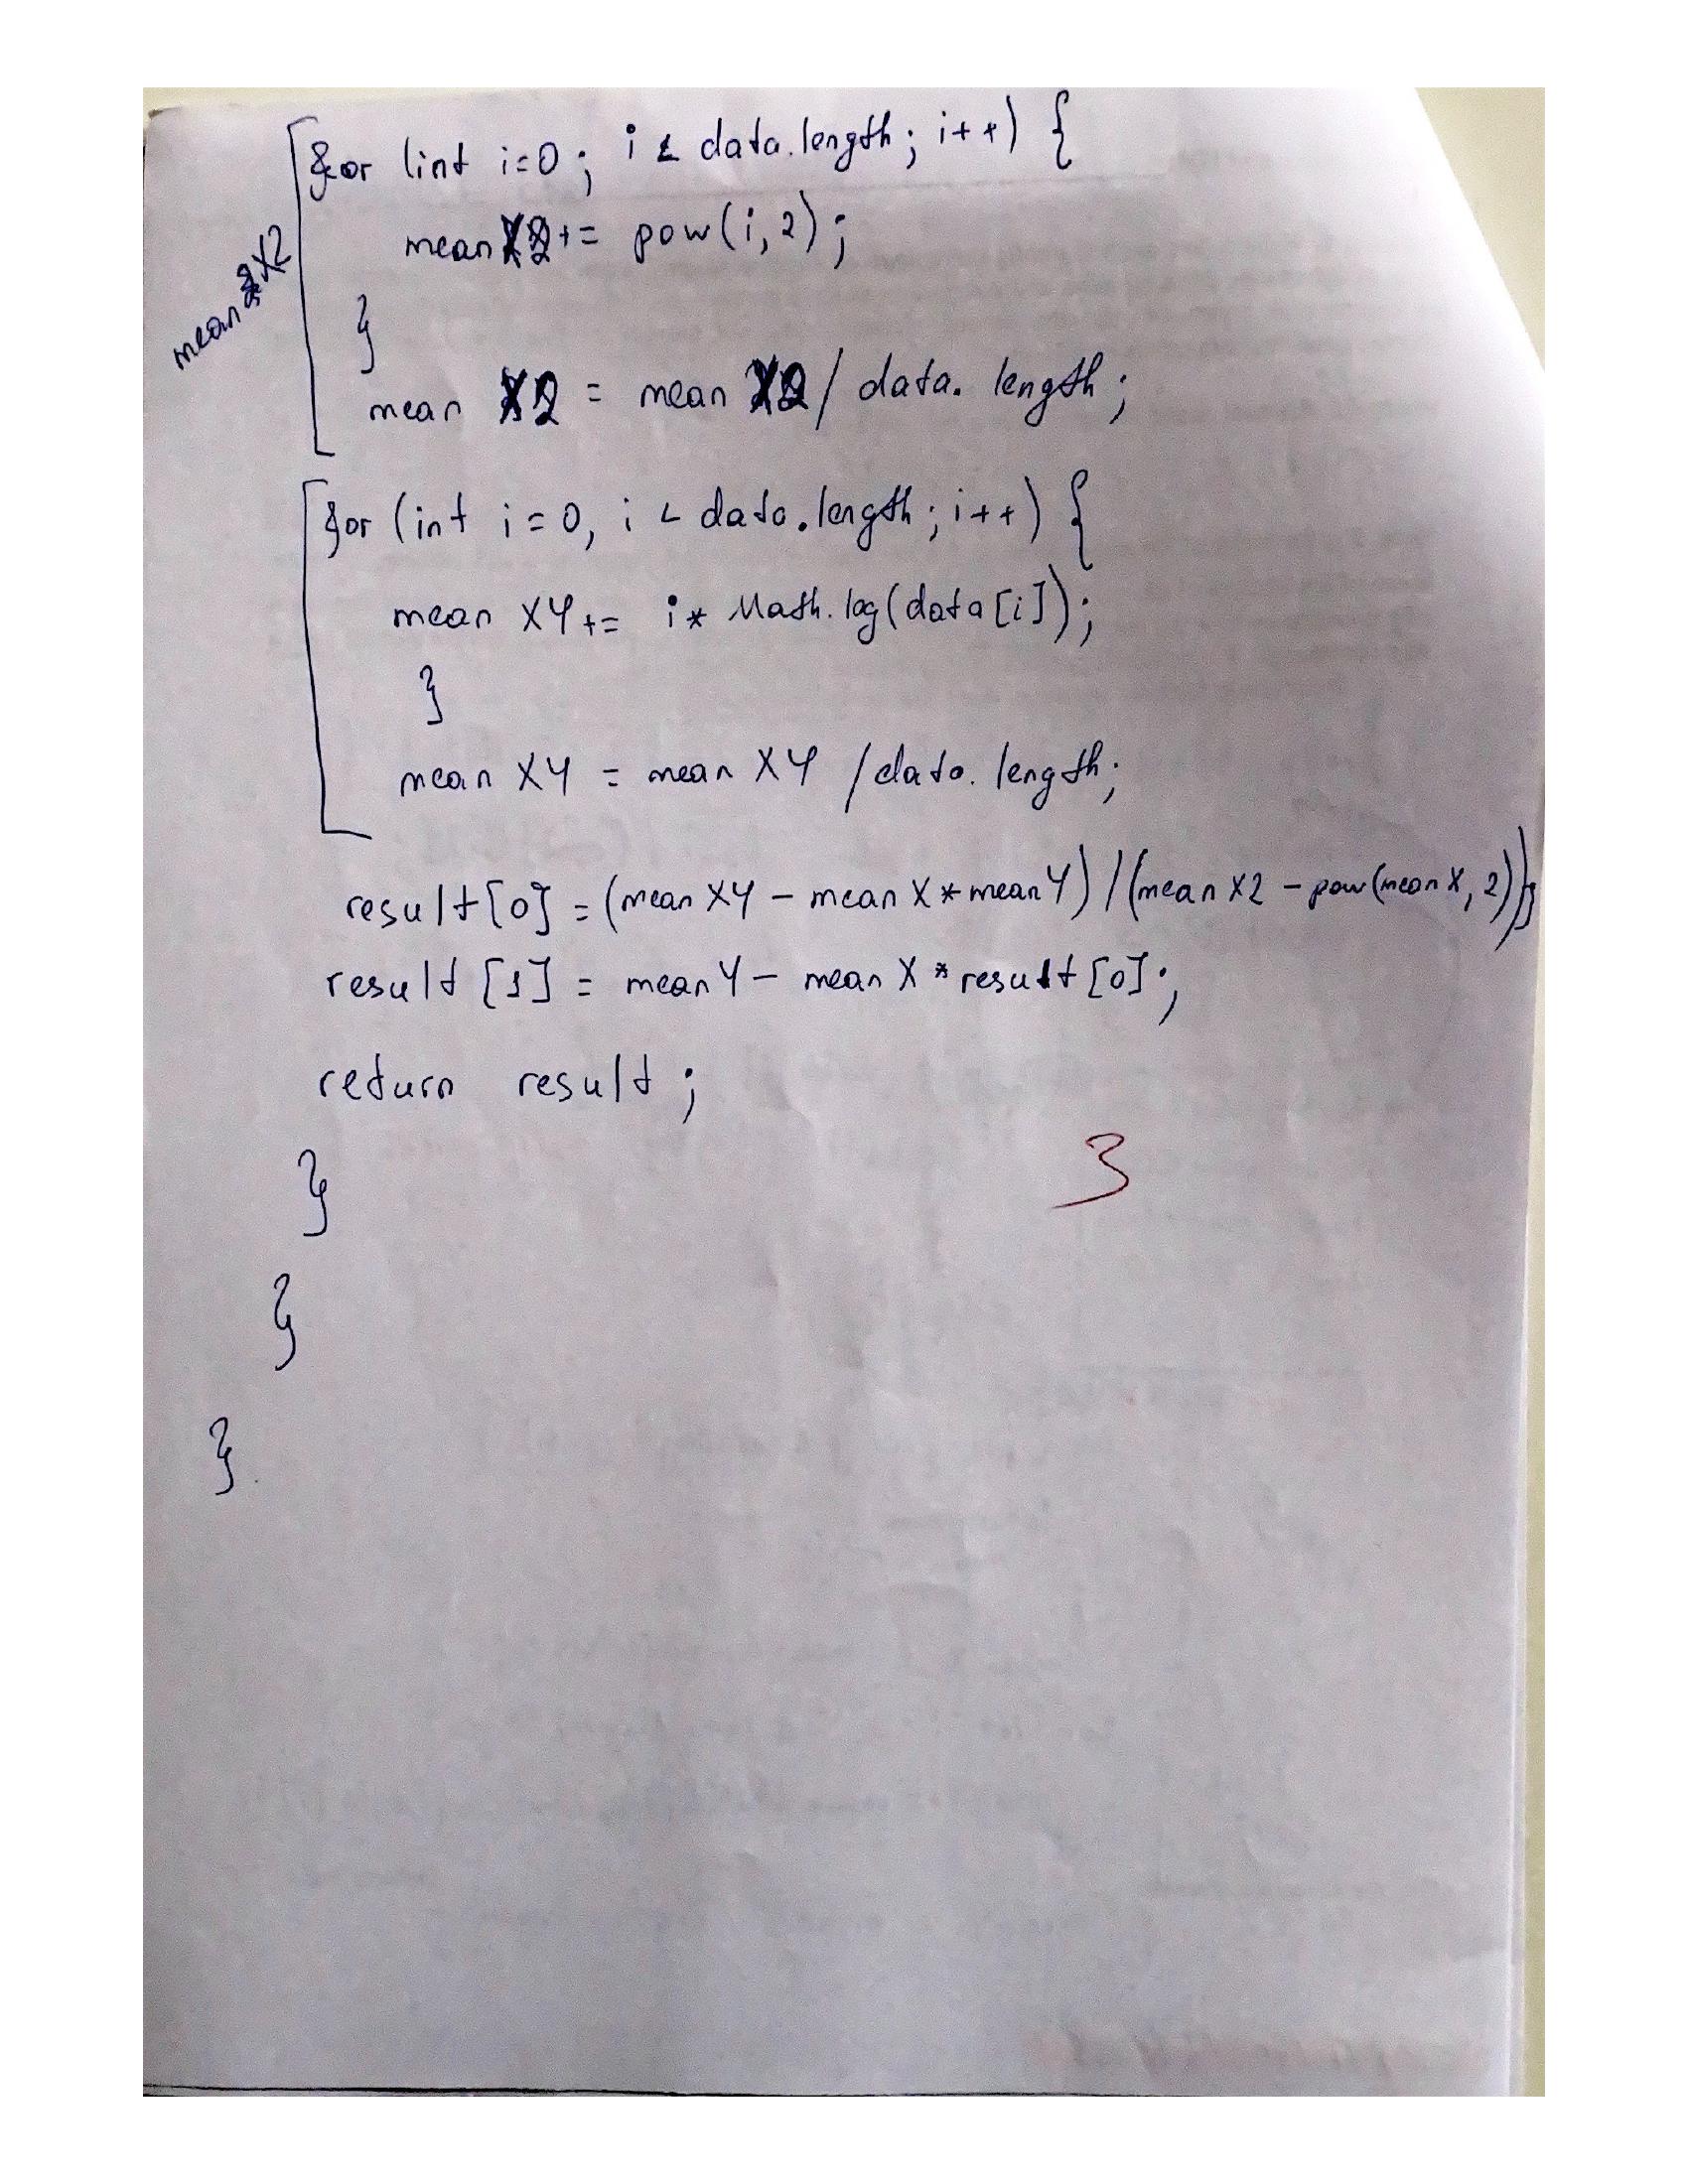 for (int i=0; i < data.length; i++) {
meanX2 += pow(i,2);
meanX2
}
mean X2 = mean X2 / data. length;
for (int i=0, i < data.length; i++) {
mean XY += i* Math.log(data[i]);
}
mean XY = mean XY / data. length;
result[0] = (mean XY - mean X * mean Y) / (mean X2 - pow(mean X, 2));
result [1] = mean Y - mean X * result [0];
return result;
3
}
}
}